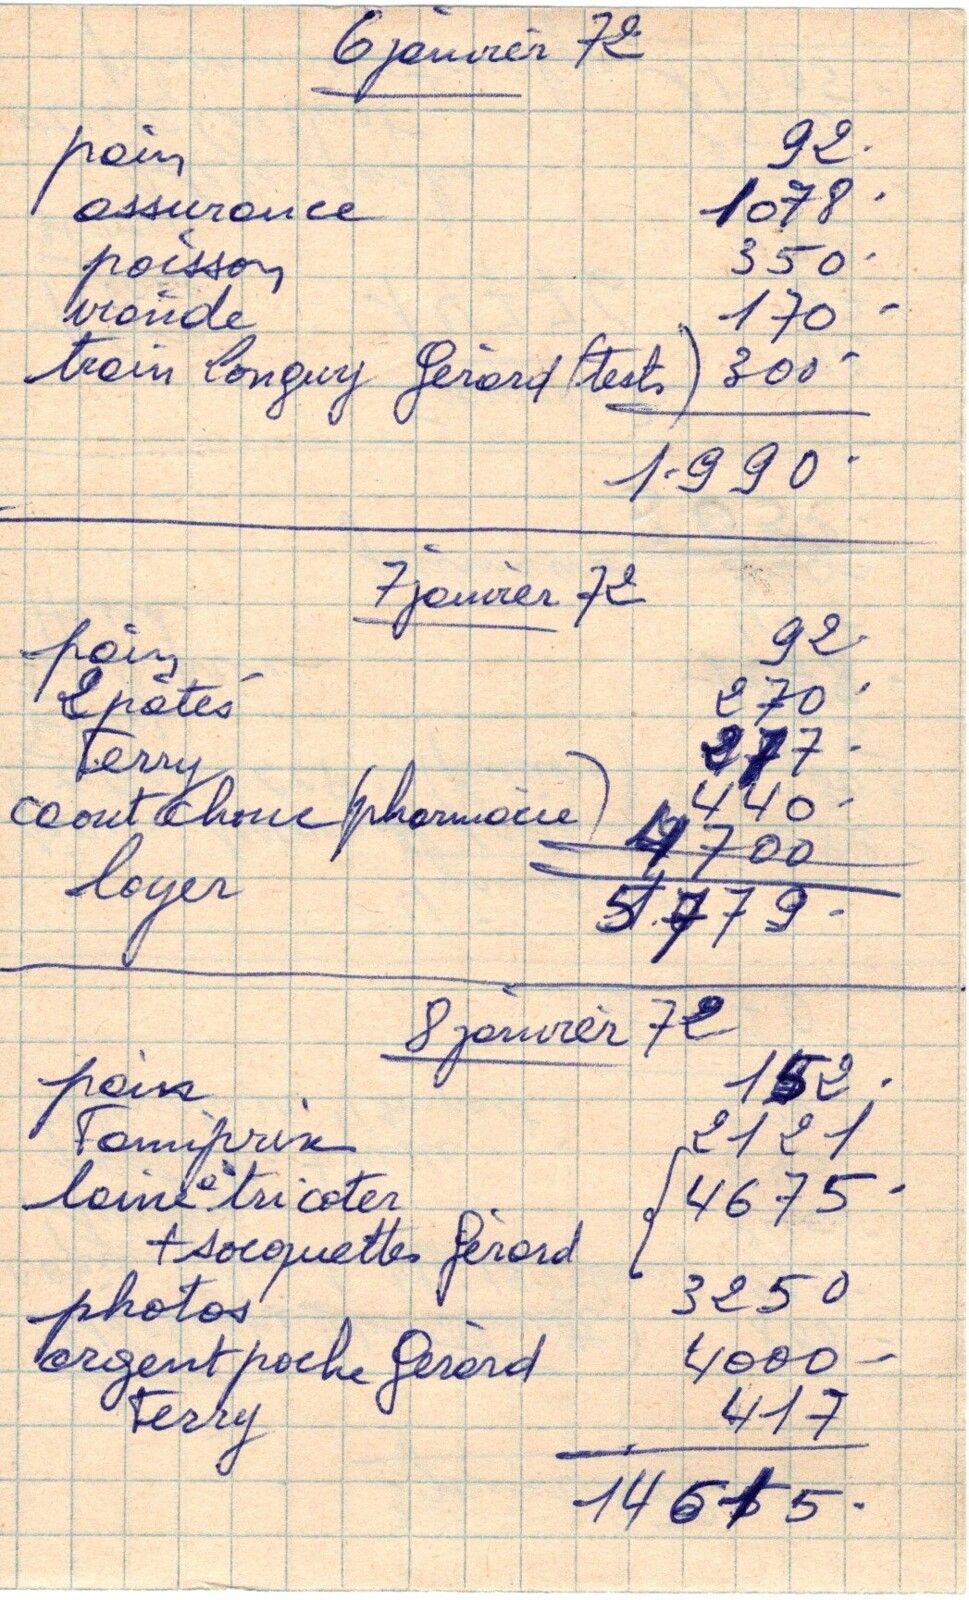 6 janvier 72
pain 92.
assurance 1078.
poisson 350.
viande 170 -
train Longwy Gérard (tests) 300 -
1.990.
7 janvier 72
pain 92.
2 pâtés 270.
Terry 277 -
caoutchouc (pharmacie) 440 -
loyer 4700
5.779 -
8 janvier 72
pain 152.
Famiprix 2121
laine à tricoter { 4675 -
+ socquettes Gérard
photos 3250
argent poche Gérard 4000 -
Terry 417
14615.